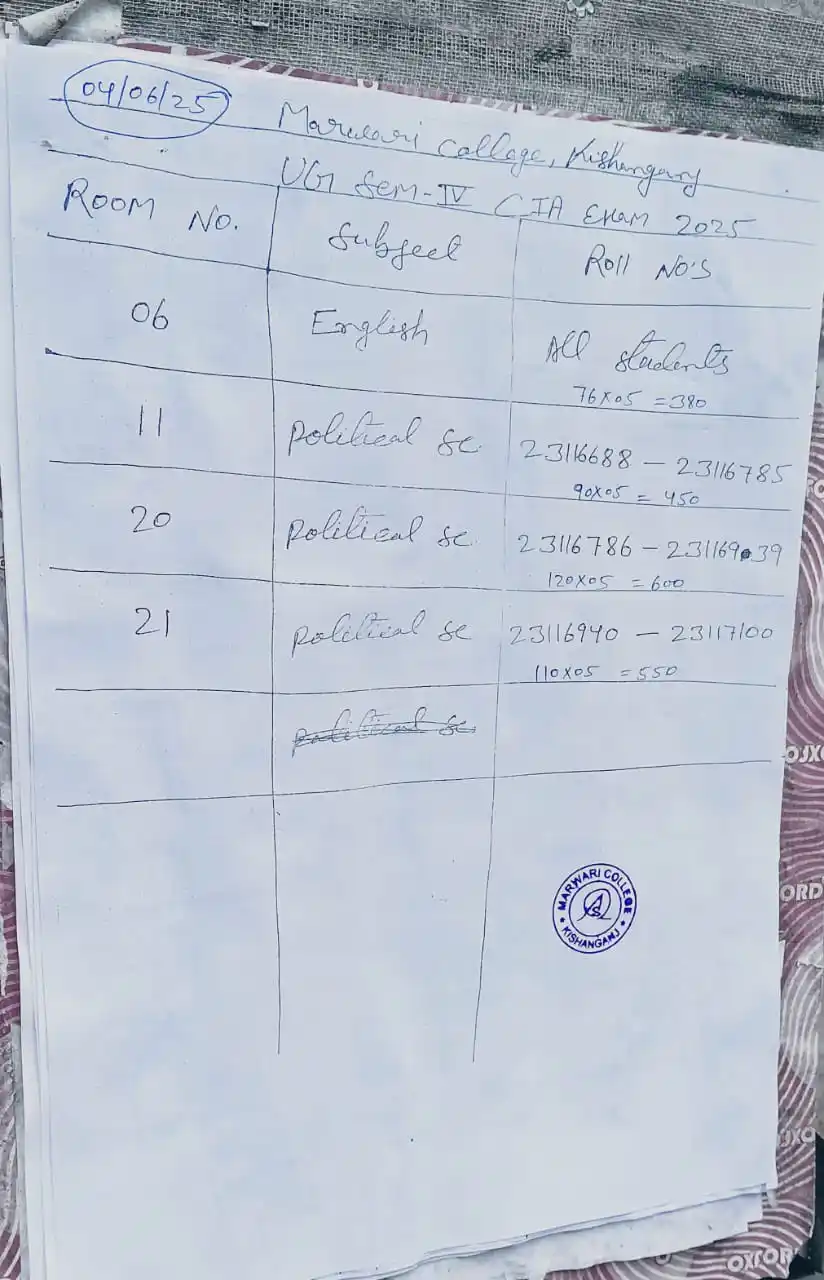 04/06/25
Marwari College, Kishanganj
UG Sem-IV CIA Exam 2025
ROOM NO. Subject Roll NO'S
06 English All students
76x05 = 380
11 Political Sc. 23116688 - 23116785
90x05 = 450
20 Political Sc 23116786 - 23116939
120x05 = 600
21 Political Sc 23116940 - 23117100
110x05 = 550
Political Sc.
MARWARI COLLEGE
KISHANGANJ
OXFOR
ORD